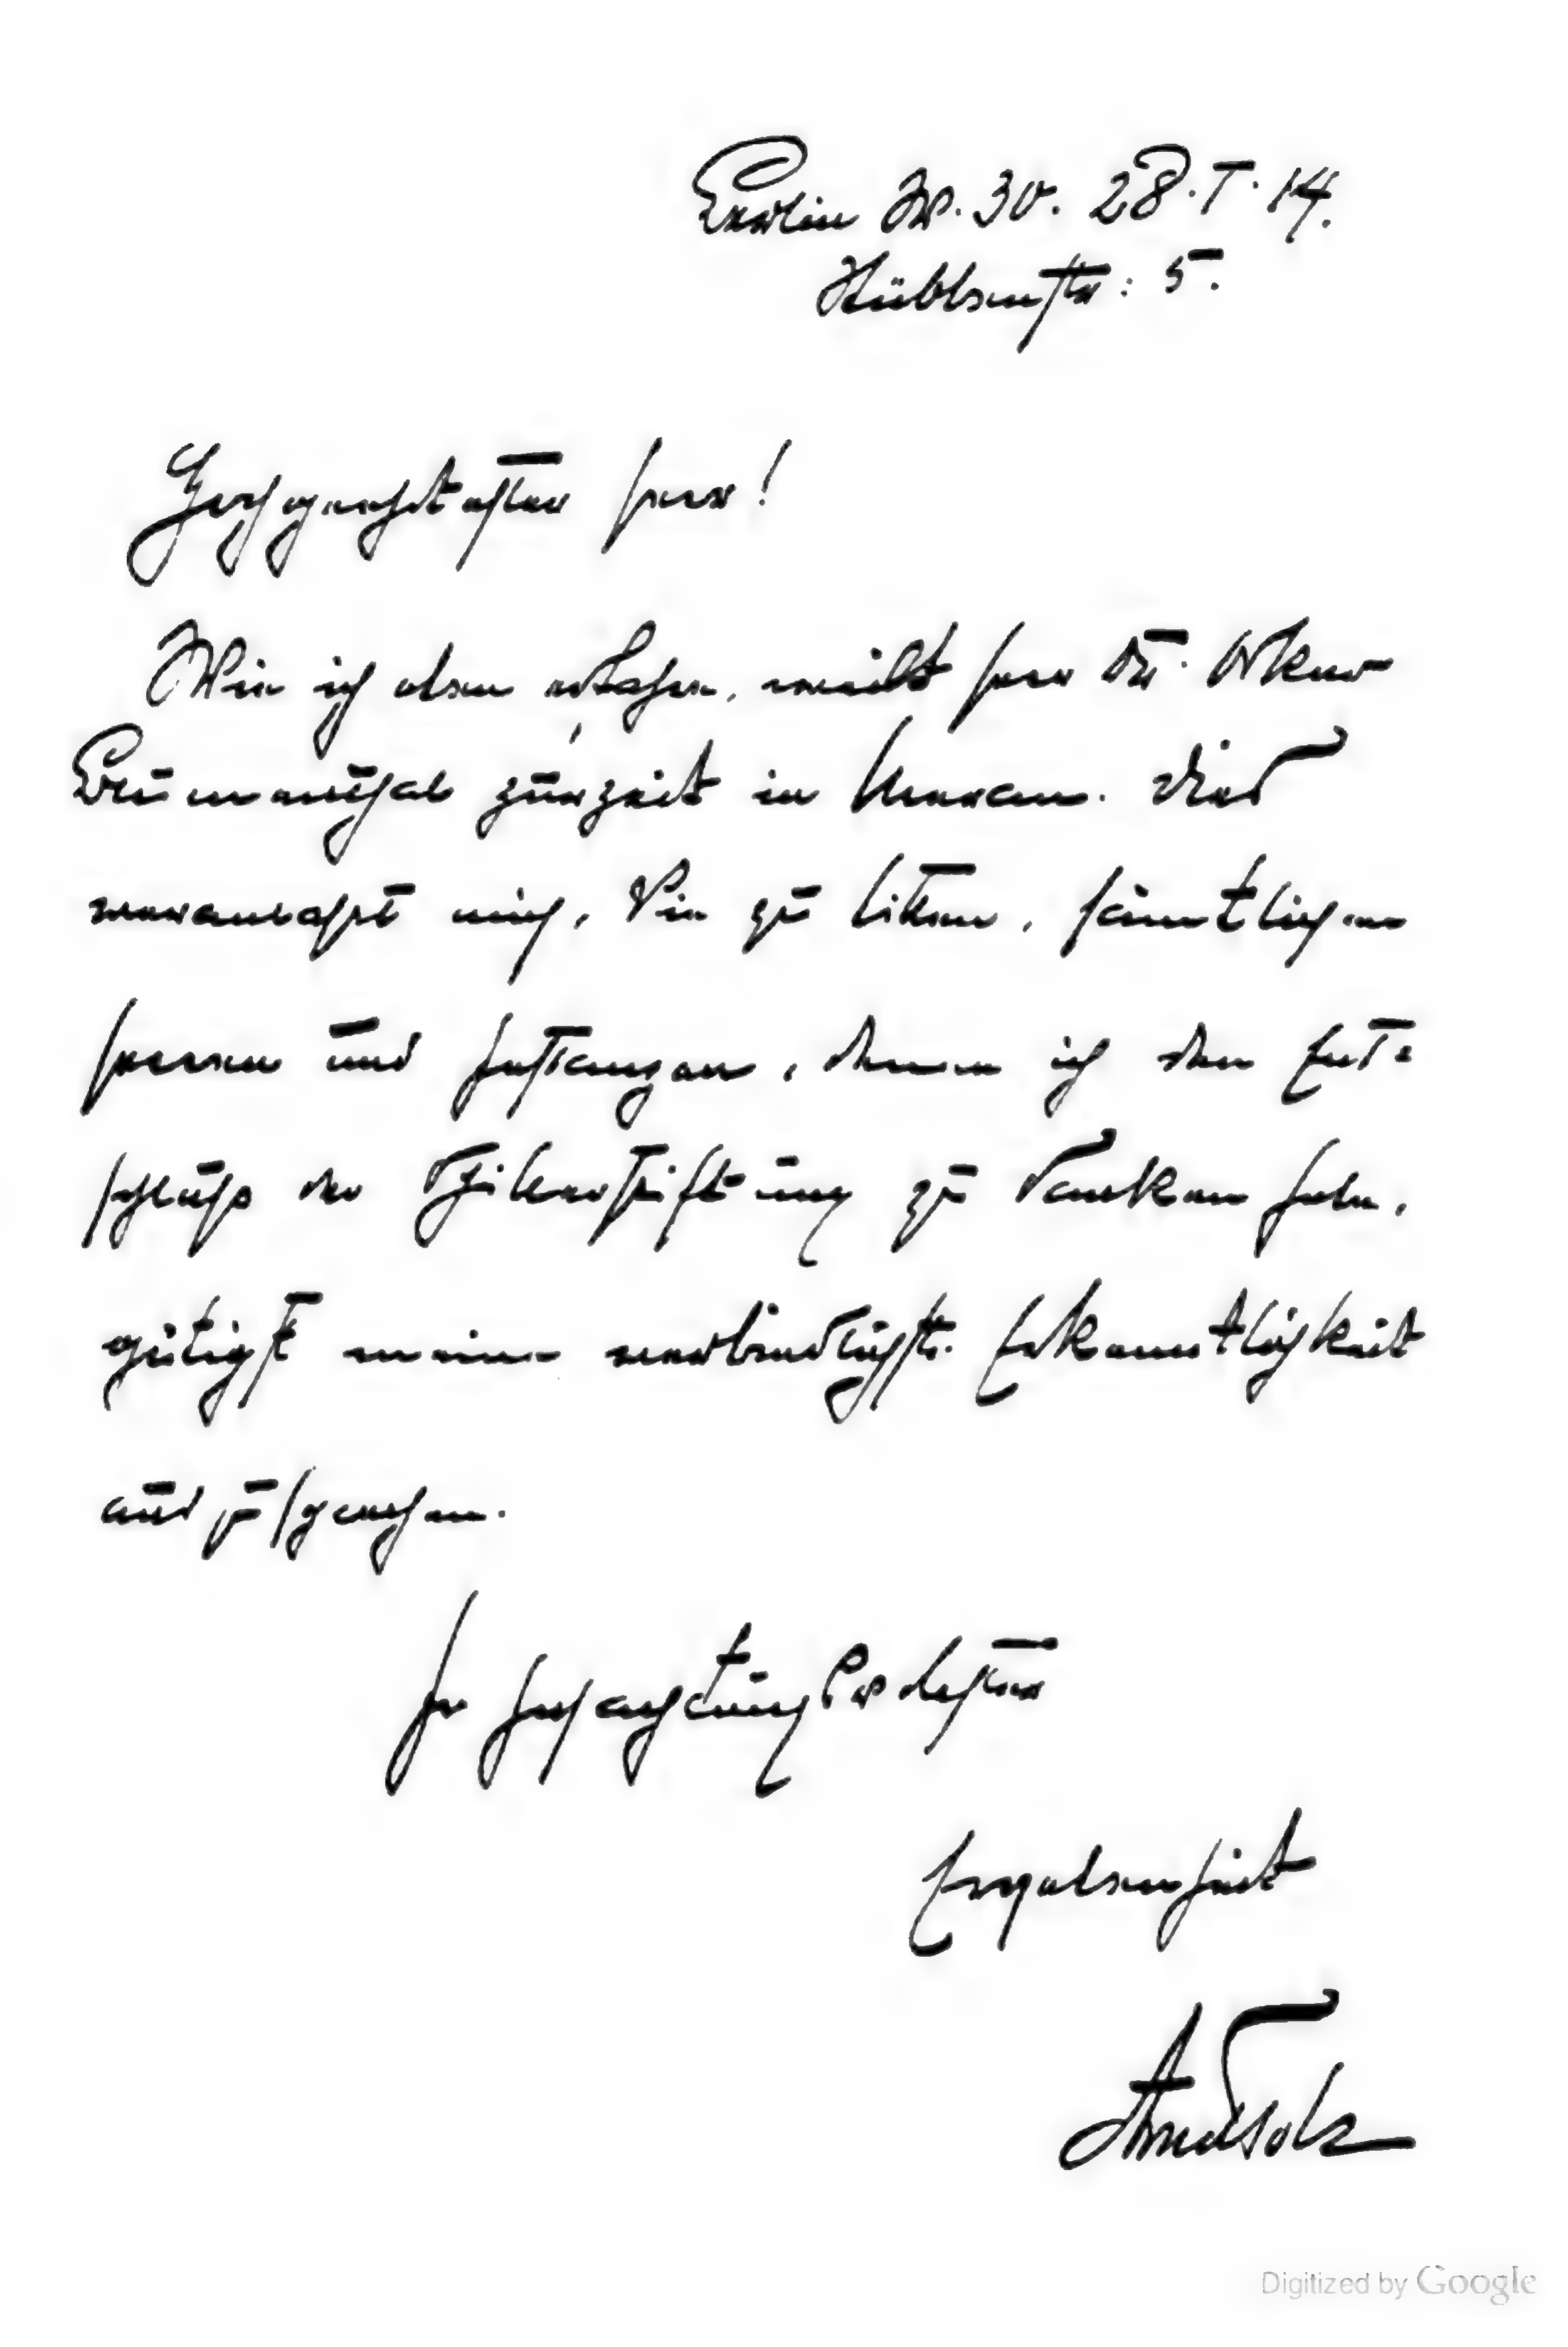 Berlin W. 30. 28. I. 14.
Stübbenstr: 5.
Hochgeehrtester Herr!
Wie ich eben erfahre, weilt Herr Dr. Oskar
Bu menthal zurzeit in Meran. Dies
veranlasst mich, Sie zu bitten, sämtlichen
Herren und Instanzen, denen ich den Ent=
schluss der Schillerstiftung zu danken habe,
gütigst meine verbindlichste Erkenntlichkeit
auszusprechen.
In hochachtungsvollster
Ergebenheit
Arno Holz
Digitized by Google